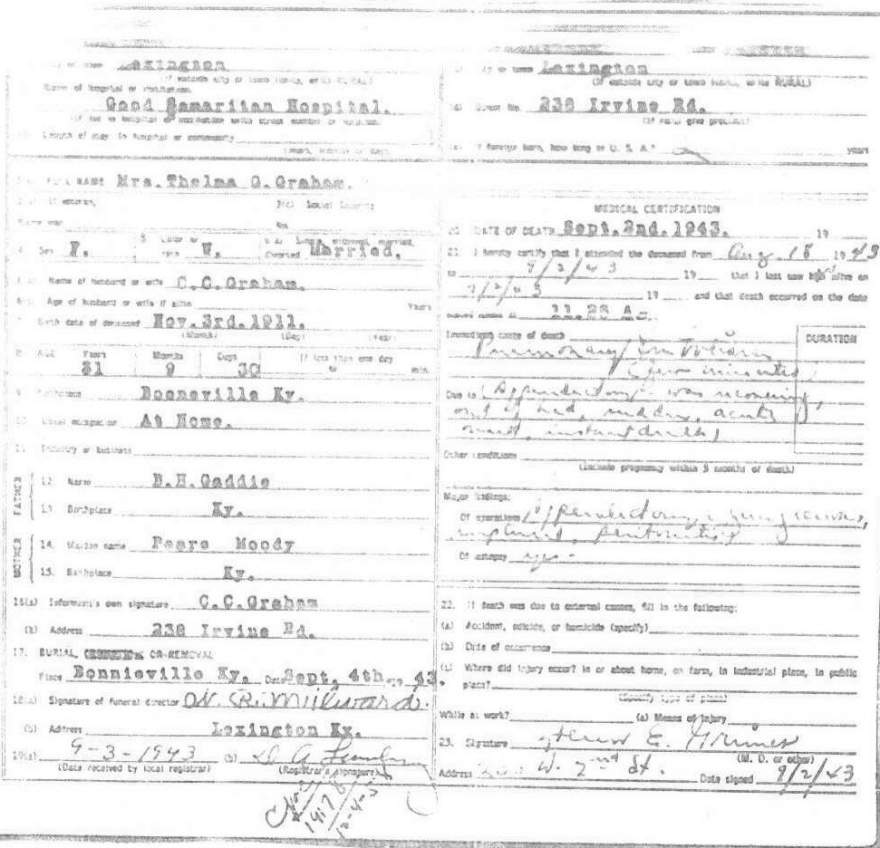 Lexington
(If outside city or town limits, write RURAL)
Name of hospital or institution:
Good Samaritan Hospital.
(If not in hospital or institution write street number or location)
Length of stay: In hospital or community
(Years, months or days)
City or town Lexington
(If outside city or town limits, write RURAL)
Street No. 238 Irvine Rd.
(If rural give precinct)
If foreign born, how long in U. S. A.? years
FULL NAME Mrs. Thelma G. Graham.
3(c) Social Security
No.
4. Sex F.
5. Color or race W.
married, divorced Married.
Name of husband or wife C.C.Graham.
Age of husband or wife if alive Years
Birth date of deceased Nov. 3rd. 1911.
(Month) (Day) (Year)
8. AGE Years Months Days If less than one day
31 9 30 min.
9. Birthplace Bonneville Ky.
10. Usual occupation At Home.
11. Industry or business
FATHER
12. Name B.H.Gaddie
13. Birthplace Ky.
MOTHER
14. Maiden name Pearo Moody
15. Birthplace Ky.
16(a) Informant's own signature C.C.Graham
(b) Address 238 Irvine Rd.
17. BURIAL, CREMATION OR REMOVAL
Place Bonnieville Ky. Date Sept. 4th, 19 43
18(a) Signature of funeral director W. R. Milward.
(b) Address Lexington Ky.
19(a) 9-3-1943 (b)
(Date received by local registrar) (Registrar's signature)
MEDICAL CERTIFICATION
20. DATE OF DEATH Sept. 2nd. 1943. 19
21. I hereby certify that I attended the deceased from Aug. 18 1943
to 9/2/43 19 that I last saw alive on
9/2/43 19 and that death occurred on the date
stated above at 11.28 A.
Immediate cause of death DURATION
Pulmonary Embolism
(few minutes)
Due to (Appendectomy - was recovering,
out of bed, sudden, acute
onset, instant death)
Other conditions
(Include pregnancy within 3 months of death)
Major findings:
Of operations Appendectomy, gangrenous,
ruptured, peritonitis
Of autopsy
22. If death was due to external causes, fill in the following:
(a) Accident, suicide, or homicide (specify)
(b) Date of occurrence
(c) Where did injury occur? In or about home, on farm, in industrial place, in public
place?
(Specify type of place)
While at work? (e) Means of injury
23. Signature E. Grimes
(M. D. or other)
Address W. 2nd St. Date signed 9/2/43